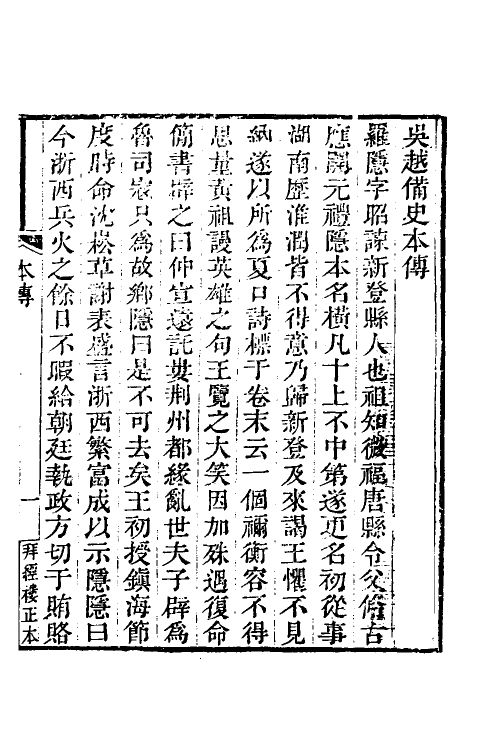 吳越備史本傳
羅隱字昭諫新登縣人也祖知微福唐縣令父脩古
應開元禮隱本名橫凡十上不中第遂更名初從事
湖南歷淮潤皆不得意乃歸新登及來謁王懼不見
納遂以所為夏口詩標于卷末云一個禰衡容不得
思量黃祖謾英雄之句王覽之大笑因加殊遇復命
簡書辟之曰仲宣遠託婁荆州都緣亂世夫子辟為
魯司寇只為故鄉隱曰是不可去矣王初授鎮海節
度時命沈崧草謝表盛言浙西繁富成以示隱隱曰
今浙西兵火之餘日不暇給朝廷執政方切于賄賂
本傳
一
拜經樓正本